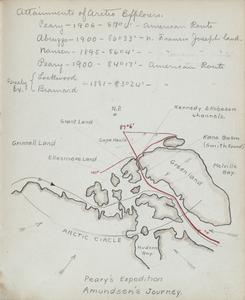 Attainments of Arctic Explorers.
Peary - 1906 - 87°6' - American Route
Abruzzi - 1900 - 86°33' - n. Francis Joseph land.
Nansen - 1895 - 86°4' - " " "
Peary - 1900 - 84°17' - American Route
Greely Ex. { Lockwood Brainard - 1881 - 83°24' - "
N.P.
Kennedy & Robeson channels.
87°6'
Grant Land
Cape Hecla
Kane Basin
(Smith Sound)
Grinnell Land
Melville Bay
Ellesmere Land
Greenland
ARCTIC CIRCLE
Hudson Bay
Peary's Expedition
Amundsen's Journey.